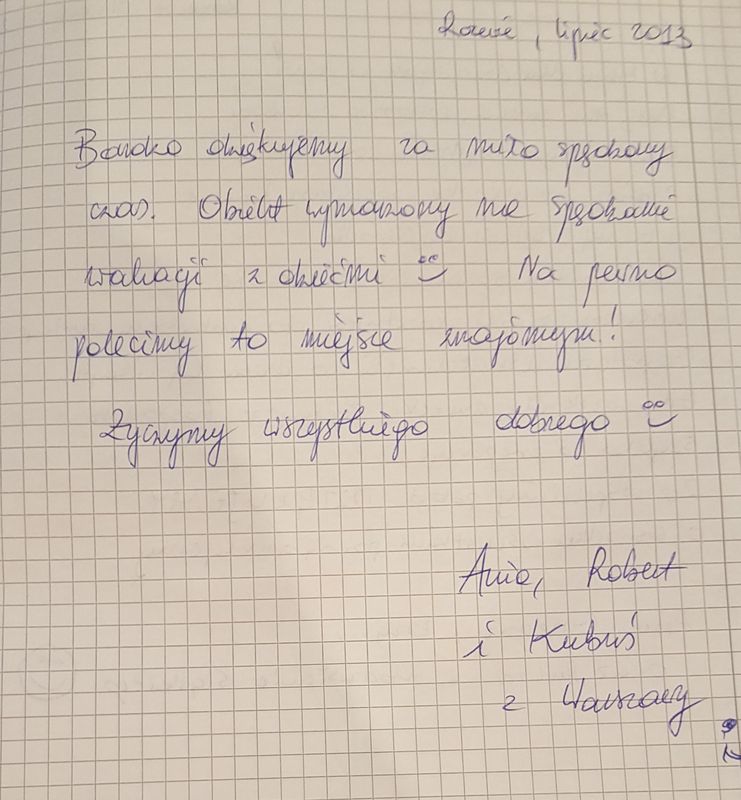 Rowie, lipiec 2013
Bardzo dziękujemy za miło spędzony
czas. Obiekt wymarzony na spędzanie
wakacji z dziećmi
Na pewno
polecimy to miejsce znajomym!
Życzymy wszystkiego dobrego
Ania, Robert
i Kubuś
z Warszawy